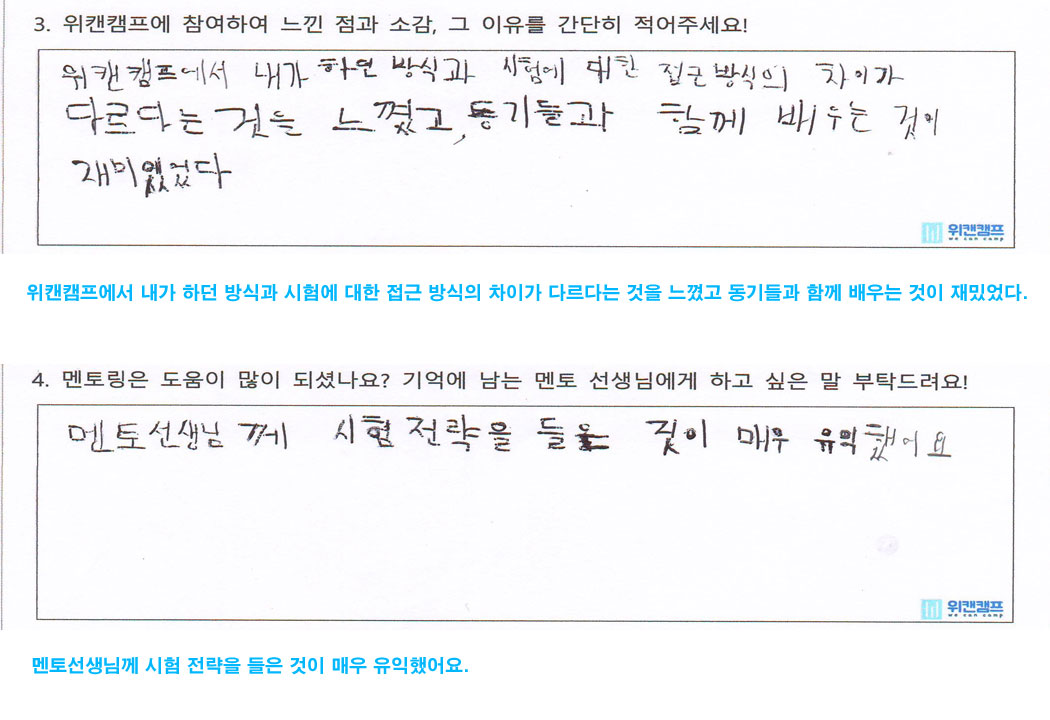 3. 위캔캠프에 참여하여 느낀 점과 소감, 그 이유를 간단히 적어주세요!
위캔캠프에서 내가 하던 방식과 시험에 대한 접근 방식의 차이가
다르다는 것을 느꼈고, 동기들과 함께 배우는 것이
재미있었다
위캔캠프
we can camp
위캔캠프에서 내가 하던 방식과 시험에 대한 접근 방식의 차이가 다르다는 것을 느꼈고 동기들과 함께 배우는 것이 재밌었다.
4. 멘토링은 도움이 많이 되셨나요? 기억에 남는 멘토 선생님에게 하고 싶은 말 부탁드려요!
멘토선생님께 시험전략을 들은 것이 매우 유익했어요
위캔캠프
we can camp
멘토선생님께 시험 전략을 들은 것이 매우 유익했어요.